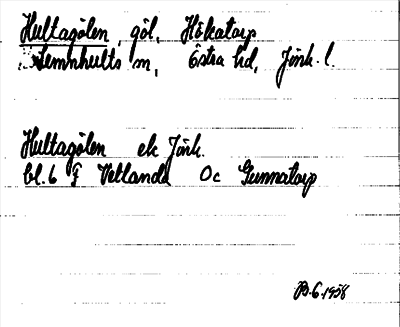 Hultagölen, göl, Hökatorp
Lemnhults sn, Östra hd, Jönk. l.
Hultagölen ek Jönk.
bl. 6 f Vetlanda Oc Gunnatorp
1958